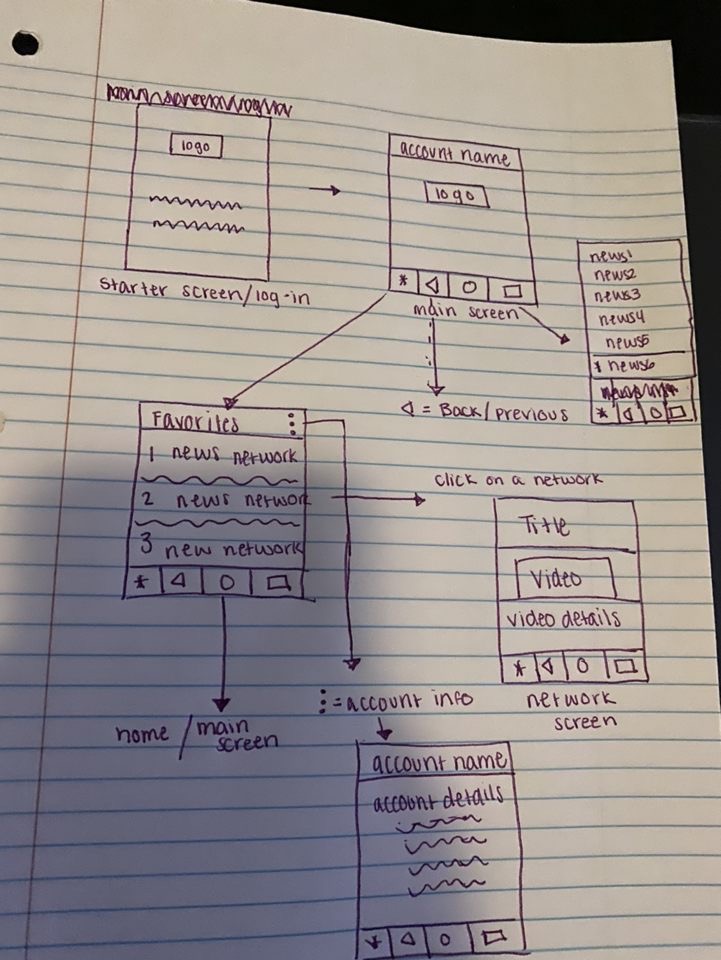 logo
starter screen/log-in
account name
logo
* ◁ ○ □
main screen
news1
news2
news3
news4
news5
* news6
* ◁ ○ □
◁ = Back/previous
Favorites ⋮
1 news network
2 news network
3 new network
* ◁ ○ □
home/main
screen
click on a network
Title
Video
video details
* ◁ ○ □
network
screen
⋮ = account info
account name
account details
* ◁ ○ □